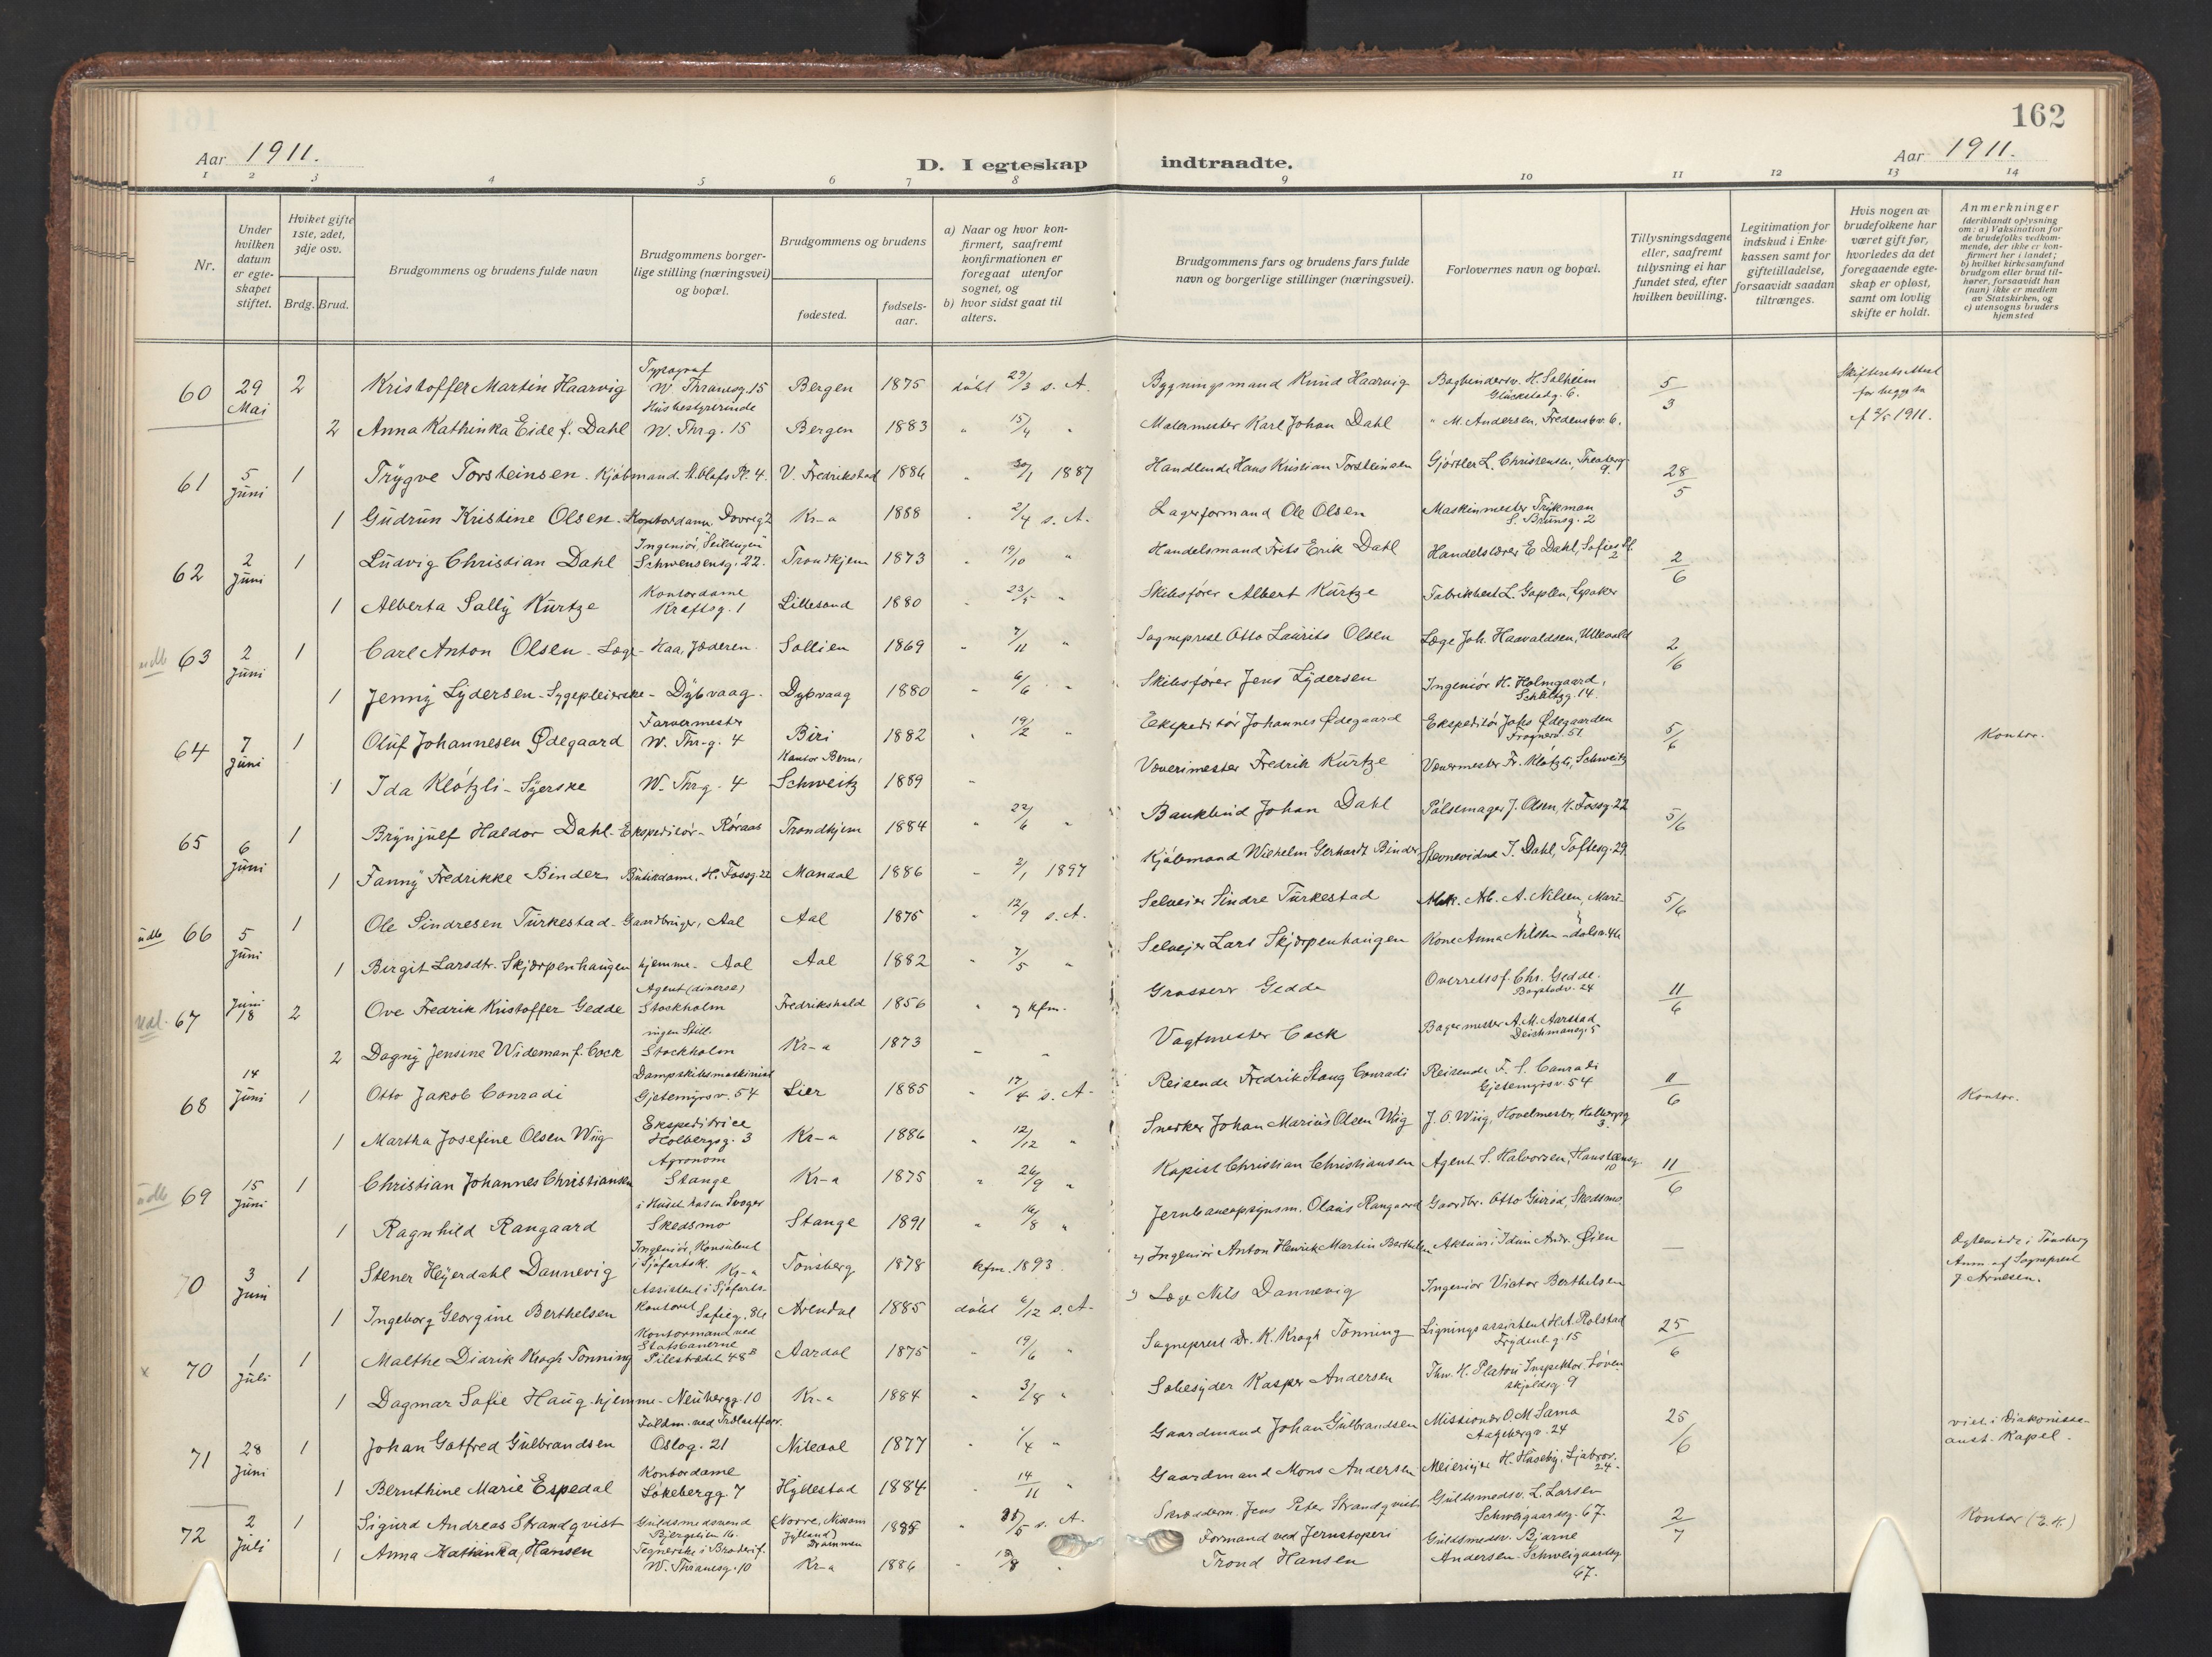 162
Aar 1911.
D. I egteskap indtraadte.
Aar 1911.
1 2 3 4 5 6 7 8 9 10 11 12 13 14
Nr.
Under hvilken datum er egteskapet stiftet.
Hvilket gifte 1ste, 2det, 3dje osv.
Brdg. Brud.
Brudgommens og brudens fulde navn
Brudgommens borgerlige stilling (næringsvei) og bopæl.
Brudgommens og brudens
fødested.
fødselsaar.
a) Naar og hvor konfirmert, saafremt konfirmationen er foregaat utenfor sognet, og
b) hvor sidst gaat til alters.
Brudgommens fars og brudens fars fulde navn og borgerlige stillinger (næringsvei).
Forlovernes navn og bopæl.
Tillysningsdagene eller, saafremt tillysning ei har fundet sted, efter hvilken bevilling.
Legitimation for indskud i Enkekassen samt for giftetilladelse, forsaavidt saadan tiltrænges.
Hvis nogen av brudefolkene har været gift før, hvorledes da det foregaaende egteskap er opløst, samt om lovlig skifte er holdt.
Anmerkninger (deriblandt oplysning om: a) Vaksination for de brudefolks vedkommende, der ikke er konfirmert her i landet; b) hvilket kirkesamfund brudgom eller brud tilhører, forsaavidt han (hun) ikke er medlem av Statskirken, og c) utensogns bruders hjemsted
60 29 Mai 2 Kristoffer Martin Haarvig Typograf W. Thranesg. 15 Bergen 1875 døbt 29/3 s. A. Bygningsmand Knud Haarvig Bogbindersv. H. Solheim Glückstadg. 6. 5/3 Skifteretsattest for begge to af 2/5 1911.
2 Anna Kathinka Eide f. Dahl Husbestyrerinde W. Thrg. 15 Bergen 1883 " 15/4 " Malermester Karl Johan Dahl " M. Andersen, Fredensbv. 6.
61 5 Juni 1 Trygve Torsteinsen - Kjøbmand. St. Olafs Pl. 4. V. Fredrikstad 1886 " 30/1 1887 Handlende Hans Kristian Torsteinsen Gjørtler L. Christensen, Theaterg. 9. 28/5
1 Gudrun Kristine Olsen - Kontordame Dovreg. 2 Kr-a 1888 " 2/4 s. A. Lagerformand Ole Olsen Maskinmester Trykman S. Brunsg. 2
62 2 Juni 1 Ludvig Christian Dahl Ingeniør, Schwensensg. 22. Trondkjem 1873 " 19/10 " Handelsmand Frits Erik Dahl Handelslærer E. Dahl, Sofies Pl. 2 2/6
1 Alberta Sally Kurtze Kontordame Kraftsg. 1 Lillesand 1880 " 23/5 " Skibsfører Albert Kurtze Fabrikbest. L. Gaplen, Lysaker
udb 63 2 Juni 1 Carl Anton Olsen - Læge - Haa, Jæderen. Sollien 1869 " 7/11 " Sogneprest Otto Laurits Olsen Læge Joh. Haavaldsen, Ullevold 2/6
1 Jenny Lydersen - Sygepleierske - Dybvaag. Dybvaag 1880 " 6/6 " Skibsfører Jens Lydersen Ingeniør H. Holmgaard, Schultzg. 14.
64 7 Juni 1 Oluf Johannesen Ødegaard Farvermester W. Thr-g. 4 Biri 1882 " 19/2 " Ekspeditør Johannes Ødegaard Ekspeditør Johs Ødegaarden Frognerv. 51 5/6 Kontor.
1 Ida Klötzli - Syerske W. Thrg. 4 Kanton Bern, Schweitz 1889 - Væverimester Fredrik Kurtze Vævermester Fr. Klötzli, Schweitz
65 6 Juni 1 Brynjulf Haldor Dahl - Ekspeditør - Røraas Trondhjem 1884 " 22/6 " Bankbud Johan Dahl Pølsemager J. Olsen, H. Fossg. 22 5/6
1 Fanny Fredrikke Binder Butikdame, H. Fossg. 22 Mandal 1886 " 2/1 1897 Kjøbmand Wilhelm Gerhardt Binder Stevnevidne T. Dahl, Toftesg. 29.
udb 66 5 Juni 1 Ole Sindresen Turkestad - Gaardbruger, Aal Aal 1875 " 12/9 s. A. Selveier Sindre Turkestad Mek. Arb. A. Nilsen, Mari- 5/6
1 Birgit Larsdtr. Skjørpenhaugen hjemme - Aal Aal 1882 " 7/5 " Selveier Lars Skjørpenhaugen Kone Anna Nilsen - dalsv. 46
udb. 67 Juni 18 2 Ove Fredrik Kristoffer Gedde Agent (diverse) Stockholm Fredrikshald 1856 " og kfm. Grosserer Gedde Overretssf. Chr. Gedde. Bogstadv. 24 11/6
2 Dagny Jensine Wideman f. Cock ingen Still. Stockholm Kr-a 1873 " " Vagtmester Cock Bagermester A. M. Aarstad Deichmansg. 5
68 14 Juni 1 Otto Jakob Conradi Dampskibsmaskinist Gjetemyrsv. 54 Lier 1885 " 17/4 s. A. Reisende Fredrik Stang Conradi Reisende F. S. Conradi Gjetemyrsv. 54 11/6 Kontor.
1 Martha Josefine Olsen Wiig Ekspeditrice Holbergsg. 3 Kr-a 1886 " 12/12 " Snerker Johan Marius Olsen Wiig J. O. Wiig, Høvelmester, Holbergsg 3.
udb 69 15 Juni 1 Christian Johannes Christiansen Agronom Stange Kr-a 1875 " 26/9 " Kopist Christian Christiansen Agent S. Halvorsen, Hausteensg. 10 11/6
1 Ragnhild Rangaard i Huset hos en Svoger Skedsmo Stange 1891 " 16/8 " Jernbaneopsynsm. Olaus Rangaard Gaardbr. Otto Guiød, Skedsmo.
70 3 Juni 1 Stener Heyerdahl Dannevig Ingeniør, Konsulent i Sjøfartsk. Kr-a Tønsberg 1878 kfm. 1893. 2) Ingeniør Anton Henrik Martin Berthelsen Aktuar i Idun Andr. Øien — Egteviede i Tønsberg Anm af Sogneprest J Arnesen.
1 Ingeborg Georgine Berthelsen Assistent i Sjøfarts- kontoret Sofieg. 86 Arendal 1885 døbt 6/12 s. A. 1) Læge Nils Dannevig Ingeniør Viator Berthelsen
x 70 1 Juli 1 Malthe Didrik Krogh Tonning Kontormand ved Statsbanerne Pilestrædet 48B Aardal 1875 " 19/6 " Sogneprest Dr. K. Krogh Tonning Ligningsassistent H. A. Rolstad Frydenl. g. 15 25/6
1 Dagmar Sofie Haug - hjemme - Neubergg. 10 Kr-a 1884 " 3/8 " Sæbesyder Kasper Andersen Thv. H. Platou Inspektør, Løvenskjoldsg 9
71 28 Juni 1 Johan Gotfred Gulbrandsen Fuldm. ved Trælastforr. Oslog. 21 Nitedal 1877 " 1/4 " Gaardmand Johan Gulbrandsen Missionær O. M. Sama Aagebergv. 24 25/6 viet i Diakonisse- anst. Kapel.
1 Bernthine Marie Espedal Kontordame Løkebergg. 7 Hyllestad 1884 " 14/11 " Gaardmand Mons Andersen Meierieier H. Huseby, Ljabrov. 24.
72 2 Juli 1 Sigurd Andreas Strandqvist Guldsmedsvend Bjergslien 16. (Nørre, Nissum Jylland) Drammen 1885 " 31/5 s. A. Skræderm. Jens Peter Strandqvist Guldsmedsv. L. Larsen Schweigaardsg. 67. 2/7 Kontor (E. K.)
1 Anna Kathinka Hansen Tegnerske i Broderif. W. Thranesg. 10 Kr-a 1886 " 18/8 " Formand ved Jernstøperi Trond Hansen Guldsmedsv. Bjarne Andersen - Schweigaardsg 67.